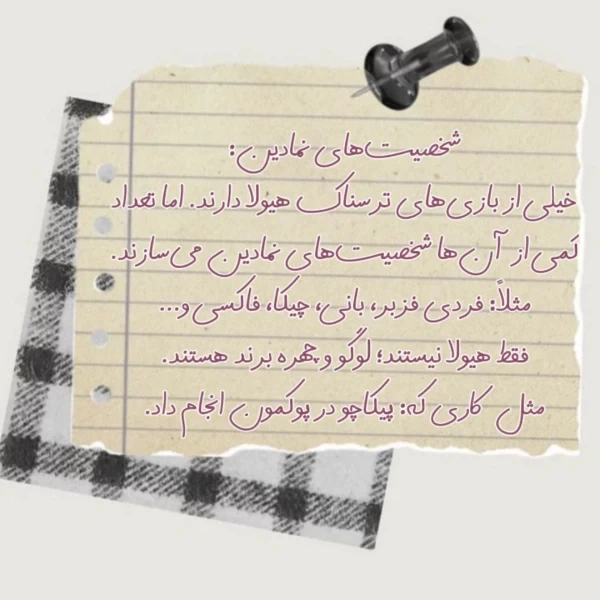 شخصیت‌های نمادین:
خیلی از بازی‌های ترسناک هیولا دارند. اما تعداد
کمی از آن‌ها شخصیت‌های نمادین می‌سازند.
مثلاً: فردی فزبر، بانی، چیکا، فاکسی و...
فقط هیولا نیستند؛ لوگو و چهره برند هستند.
مثل کاری که: پیکاچو در پوکمون انجام داد.